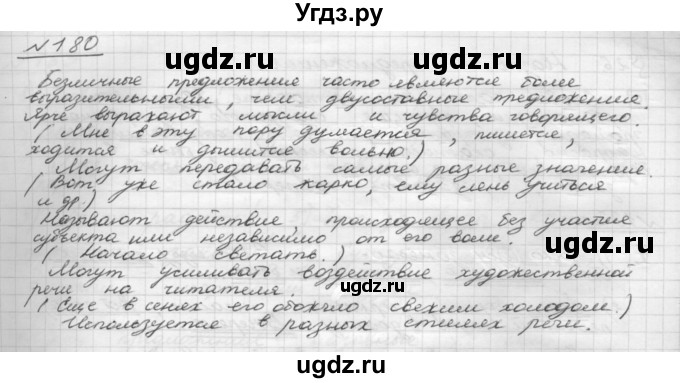 Угдз.ру
№180
Безличные предложения часто являются более
выразительными, чем двусоставные предложения.
Ярче выражают мысли и чувства говорящего.
(Мне в эту пору думается, пишется,
ходится и дышится вольно.)
Могут передавать самые разные значения.
(Вот уже стало жарко, ему лень учиться
и др.)
Называют действие, происходящее без участие
субъекта или независимо от его воли.
(Начало светать.)
Могут усиливать воздействие художественной
речи на читателя.
(Еще в сенях его обожгло свежим холодом.)
Используется в разных стилях речи.
ugdz.ru
ugdz.ru
ugdz.ru
ugdz.ru
ugdz.ru
ugdz.ru
ugdz.ru
ugdz.ru